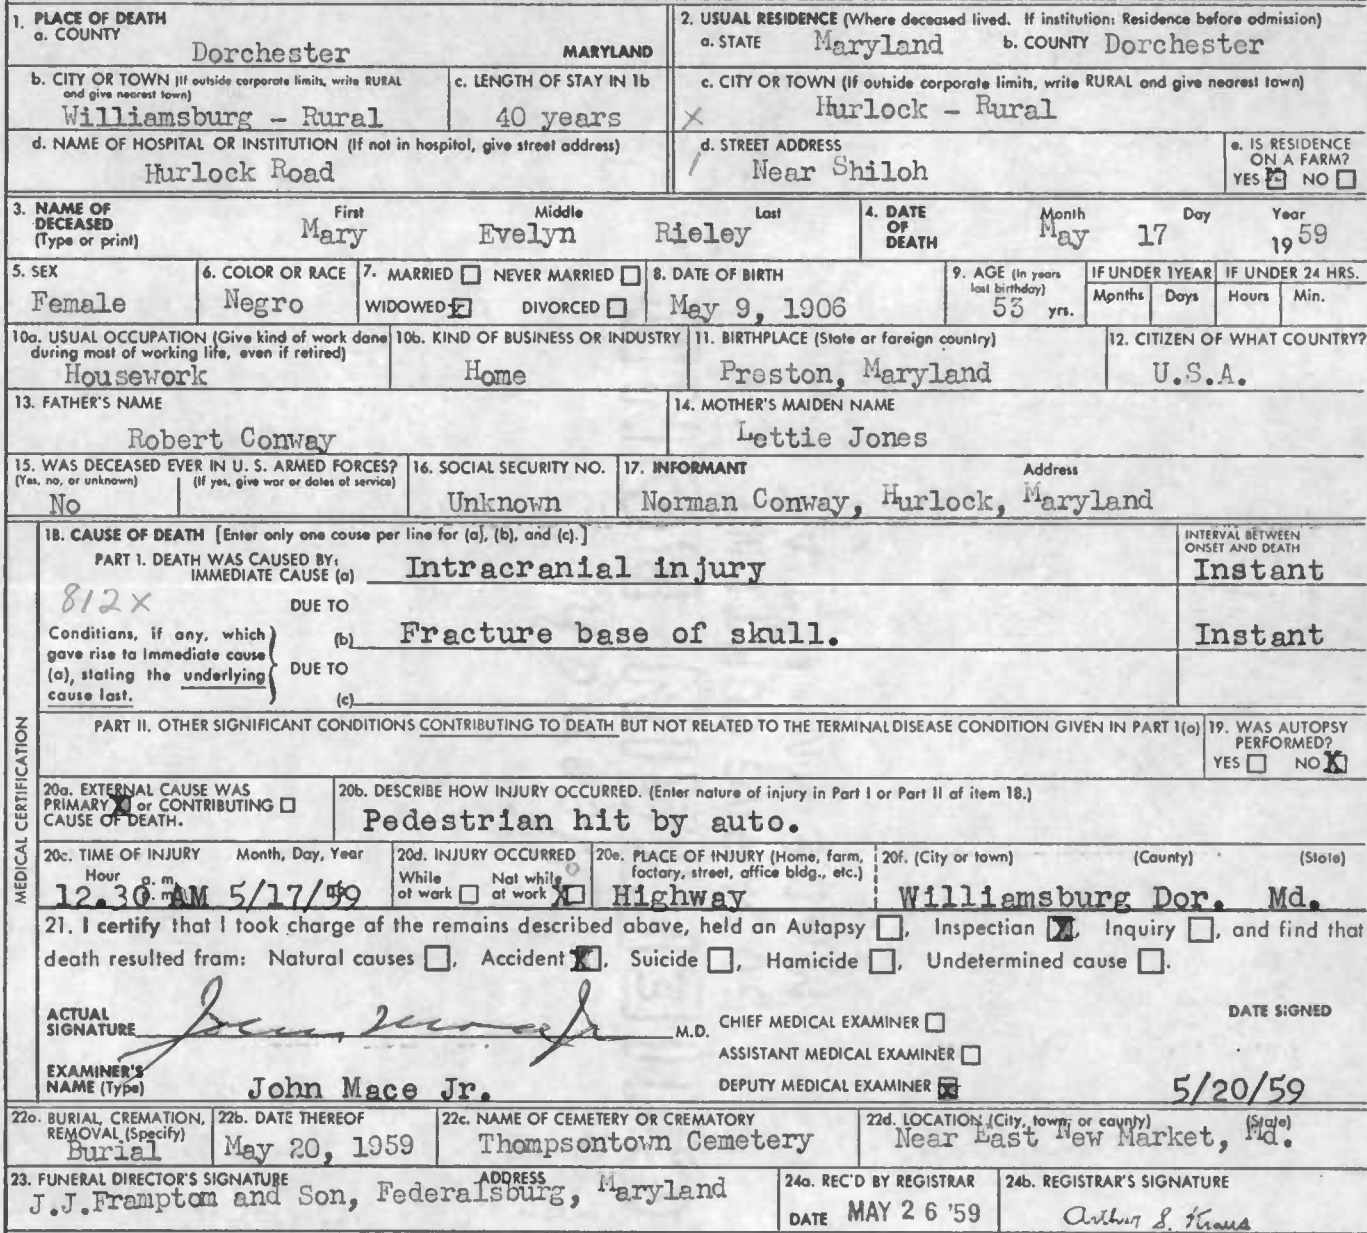 1. PLACE OF DEATH
a. COUNTY
Dorchester MARYLAND
2. USUAL RESIDENCE (Where deceased lived. If institution: Residence before admission)
a. STATE Maryland b. COUNTY Dorchester
b. CITY OR TOWN (If outside corporate limits, write RURAL and give nearest town)
Williamsburg - Rural
c. LENGTH OF STAY IN 1b
40 years
c. CITY OR TOWN (If outside corporate limits, write RURAL and give nearest town)
X Hurlock - Rural
d. NAME OF HOSPITAL OR INSTITUTION (If not in hospital, give street address)
Hurlock Road
d. STREET ADDRESS
Near Shiloh
e. IS RESIDENCE ON A FARM?
YES X NO
3. NAME OF DECEASED (Type or print)
First Middle Last
Mary Evelyn Rieley
4. DATE OF DEATH
Month Day Year
May 17 1959
5. SEX
Female
6. COLOR OR RACE
Negro
7. MARRIED NEVER MARRIED
WIDOWED X DIVORCED
8. DATE OF BIRTH
May 9, 1906
9. AGE (In years last birthday)
53 yrs.
IF UNDER 1 YEAR
Months Days
IF UNDER 24 HRS.
Hours Min.
10a. USUAL OCCUPATION (Give kind of work done during most of working life, even if retired)
Housework
10b. KIND OF BUSINESS OR INDUSTRY
Home
11. BIRTHPLACE (State or foreign country)
Preston, Maryland
12. CITIZEN OF WHAT COUNTRY?
U.S.A.
13. FATHER'S NAME
Robert Conway
14. MOTHER'S MAIDEN NAME
Lettie Jones
15. WAS DECEASED EVER IN U. S. ARMED FORCES?
(Yes, no, or unknown) (If yes, give war or dates of service)
No
16. SOCIAL SECURITY NO.
Unknown
17. INFORMANT Address
Norman Conway, Hurlock, Maryland
MEDICAL CERTIFICATION
18. CAUSE OF DEATH [Enter only one cause per line for (a), (b), and (c).]
INTERVAL BETWEEN ONSET AND DEATH
PART I. DEATH WAS CAUSED BY:
IMMEDIATE CAUSE (a) Intracranial injury Instant
812X
DUE TO
(b) Fracture base of skull. Instant
Conditions, if any, which gave rise to Immediate cause (a), stating the underlying cause last.
DUE TO
(c)
PART II. OTHER SIGNIFICANT CONDITIONS CONTRIBUTING TO DEATH BUT NOT RELATED TO THE TERMINAL DISEASE CONDITION GIVEN IN PART I(a)
19. WAS AUTOPSY PERFORMED?
YES NO X
20a. EXTERNAL CAUSE WAS
PRIMARY X or CONTRIBUTING
CAUSE OF DEATH.
20b. DESCRIBE HOW INJURY OCCURRED. (Enter nature of injury in Part I or Part II of item 18.)
Pedestrian hit by auto.
20c. TIME OF INJURY Month, Day, Year
Hour a. m. p. m.
12.30 AM 5/17/59
20d. INJURY OCCURRED
While at work Not while at work X
20e. PLACE OF INJURY (Home, farm, factory, street, office bldg., etc.)
Highway
20f. (City or town) (County) (State)
Williamsburg Dor. Md.
21. I certify that I took charge of the remains described above, held an Autopsy , Inspection X, Inquiry , and find that
death resulted from: Natural causes , Accident X, Suicide , Homicide , Undetermined cause .
ACTUAL SIGNATURE John Mace Jr M.D.
CHIEF MEDICAL EXAMINER
ASSISTANT MEDICAL EXAMINER
DEPUTY MEDICAL EXAMINER X
DATE SIGNED
5/20/59
EXAMINER'S NAME (Type) John Mace Jr.
22a. BURIAL, CREMATION, REMOVAL (Specify)
Burial
22b. DATE THEREOF
May 20, 1959
22c. NAME OF CEMETERY OR CREMATORY
Thompsontown Cemetery
22d. LOCATION (City, town, or county) (State)
Near East New Market, Md.
23. FUNERAL DIRECTOR'S SIGNATURE ADDRESS
J.J.Framptom and Son, Federalsburg, Maryland
24a. REC'D BY REGISTRAR
DATE MAY 26 '59
24b. REGISTRAR'S SIGNATURE
Arthur S. Kraus